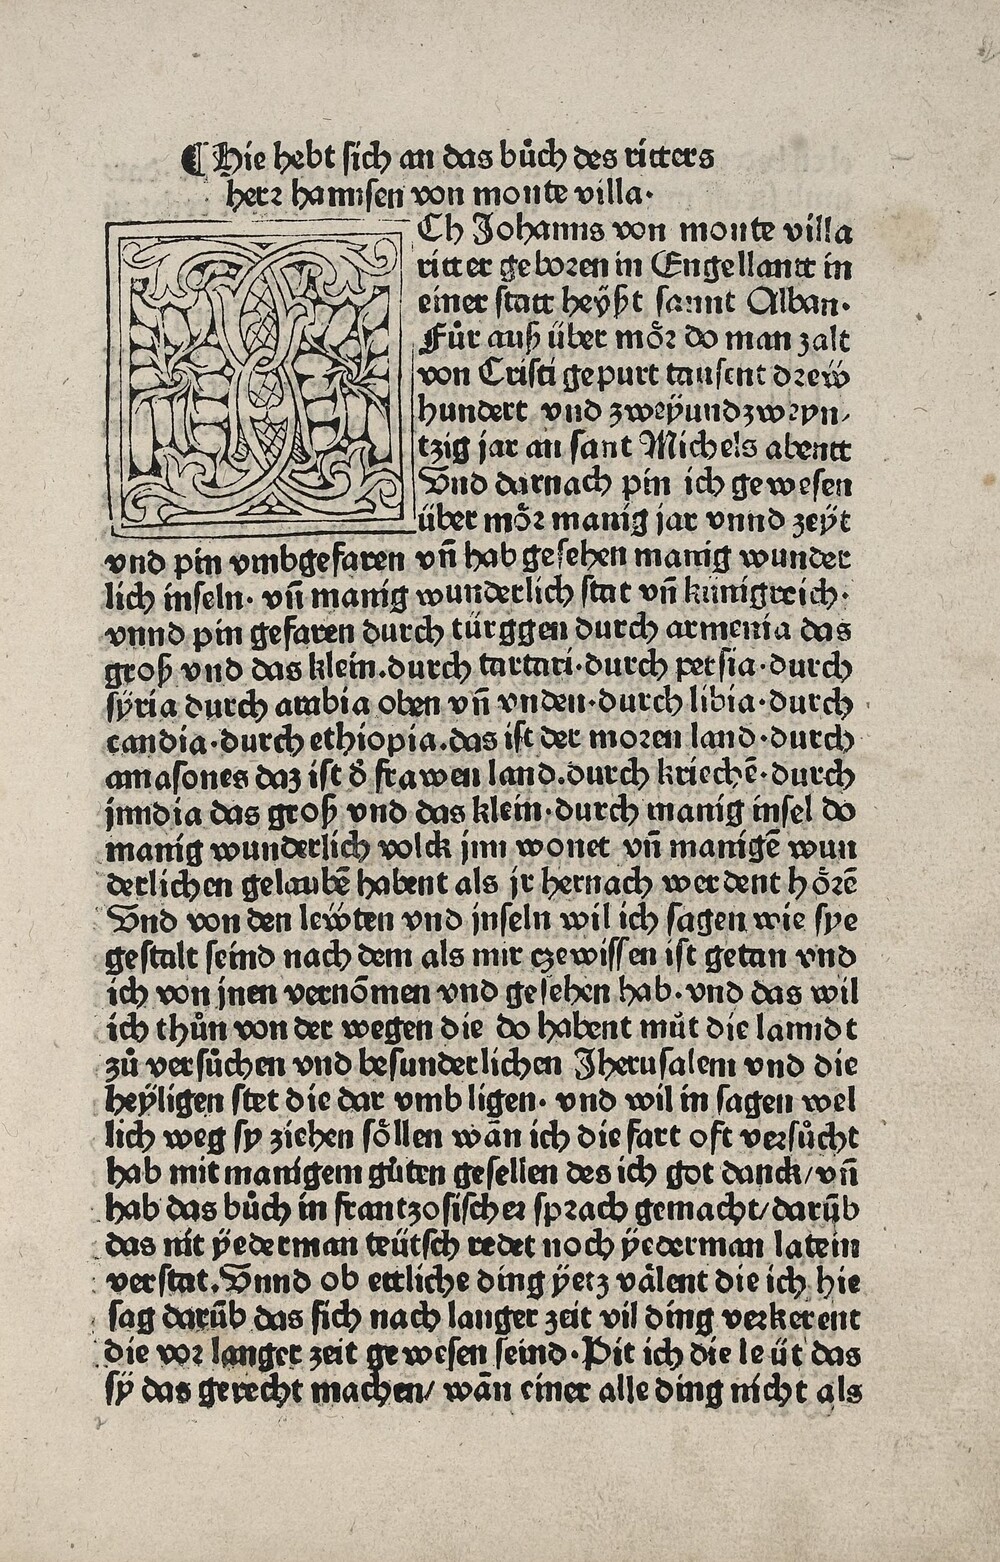 ¶ Hie hebt sich an das bůch des ritters
herr hannsen von monte villa.
ICh Johanns von monte villa
ritter geboren in Engellantt in
einer statt heyßt sannt Alban.
Für auß über möꝛ do man zalt
von Cristi gepurt tausent dreẅ
hundert vnd zweÿundzweyn⸗
tzig jar an sant Michels abentt
Vnd darnach pin ich gewesen
über möꝛ manig jar vnnd zeÿt
vnd pin vmbgefaren vn̄ hab gesehen manig wunder
lich inseln. vn̄ manig wunderlich stat vn̄ künigreich.
vnnd pin gefaren durch türggen durch armenia das
groß vnd das klein. durch tartari. durch persia. durch
syria durch arabia oben vn̄ vnden. durch libia. durch
candia. durch ethiopia. das ist der moren land. durch
amasones daz ist d̾ frawen land. durch kriechē. durch
jnndia das groß vnd das klein. durch manig insel do
manig wunderlich volck jnn wonet vn̄ manigē wun
derlichen gelaubē habent als jr hernach werdent hörē
Vnd von den leẅten vnd jnseln wil ich sagen wie sye
gestalt seind nach dem als mir czewissen ist getan vnd
ich von jnen vernōmen vnd gesehen hab. vnd das wil
ich thůn von der wegen die do habent můt die lanndt
zů versůchen vnd besunderlichen Jherusalem vnd die
heÿligen stet die dar vmb ligen. vnd wil in sagen wel
lich weg sy ziehen söllen wān ich die fart oft versůcht
hab mit manigem gůten gesellen des ich got danck/ vn̄
hab das bůch in frantzosischer sprach gemacht/ darūb
das nit ÿederman teütsch redet noch ÿederman latein
verstat. Vnnd ob ettliche ding ÿetz välent die ich hie
sag darūb das sich nach langer zeit vil ding verkerent
die vor langer zeit gewesen seind. Pit ich die leüt das
sÿ das gerecht machen/ wān einer alle ding nicht als